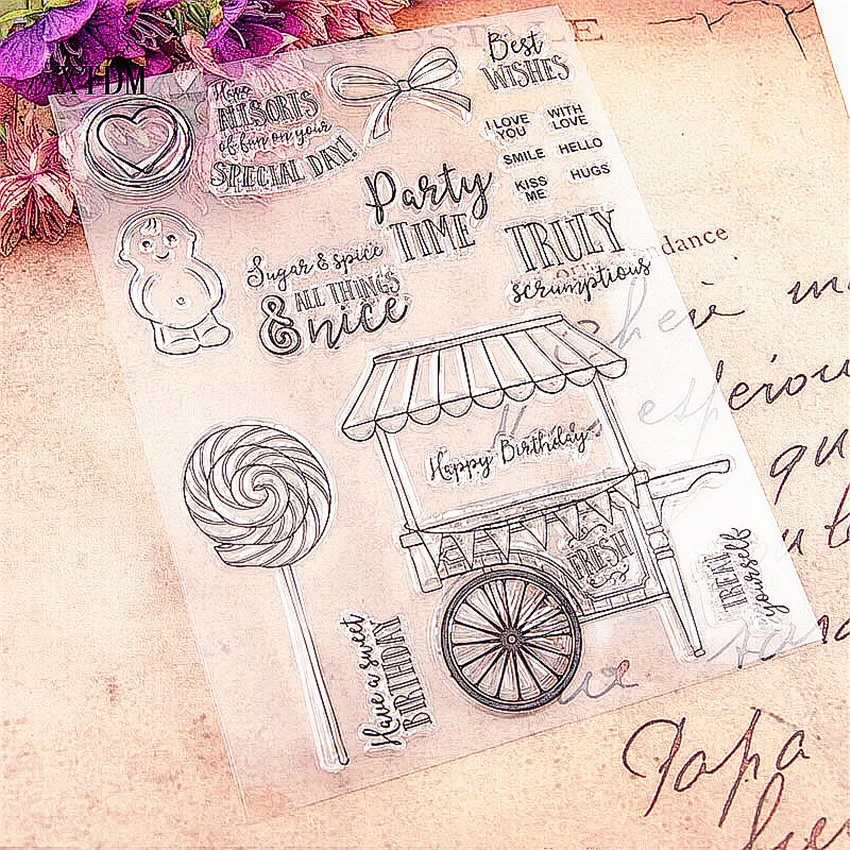 POSTALE
XFDM
Best
WISHES
Have
ALLSORTS
of fun on your
SPECIAL DAY!
I LOVE
YOU
WITH
LOVE
SMILE
HELLO
KISS
ME
HUGS
Party
TIME
TRULY
scrumptious
Sugar & spice
ALL THINGS
& nice
dance
Happy Birthday
FRESH
TREAT
yourself
Have a sweet
BIRTHDAY
Papa